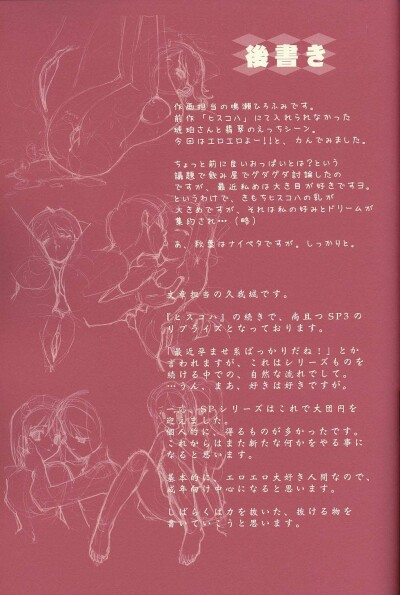 後書き
作画担当の鳴瀬ひろふみです。
前作「ヒスコハ」にて入れられなかった
琥珀さんと翡翠のえっちシーン。
今回はエロエロよー!!と、カんでみました。
ちょっと前に良いおっぱいとは?という
議題で飲み屋でグダグダ討論したの
ですが、最近私めは大き目が好きですヨ。
というわけで、きもちヒスコハの乳が
大きめですが、それは私の好みとドリームが
集約され…(略)
あ、秋葉はナイペタですが。しっかりと。
文章担当の久我城です。
『ヒスコハ』の続きで、尚且つSP3の
リプライズとなっております。
「最近孕ませ系ばっかりだね!」とか
言われますが、これはシリーズものを
続ける中での、自然な流れでして。
…うん、まあ、好きは好きですが。
一応、SPシリーズはこれで大団円を
迎えました。
個人的に、得るものが多かったです。
これからはまた新たな何かをやる事に
なると思います。
基本的に、エロエロ大好き人間なので、
成年向け中心になると思います。
しばらくは力を抜いた、抜ける物を
書いていこうと思います。